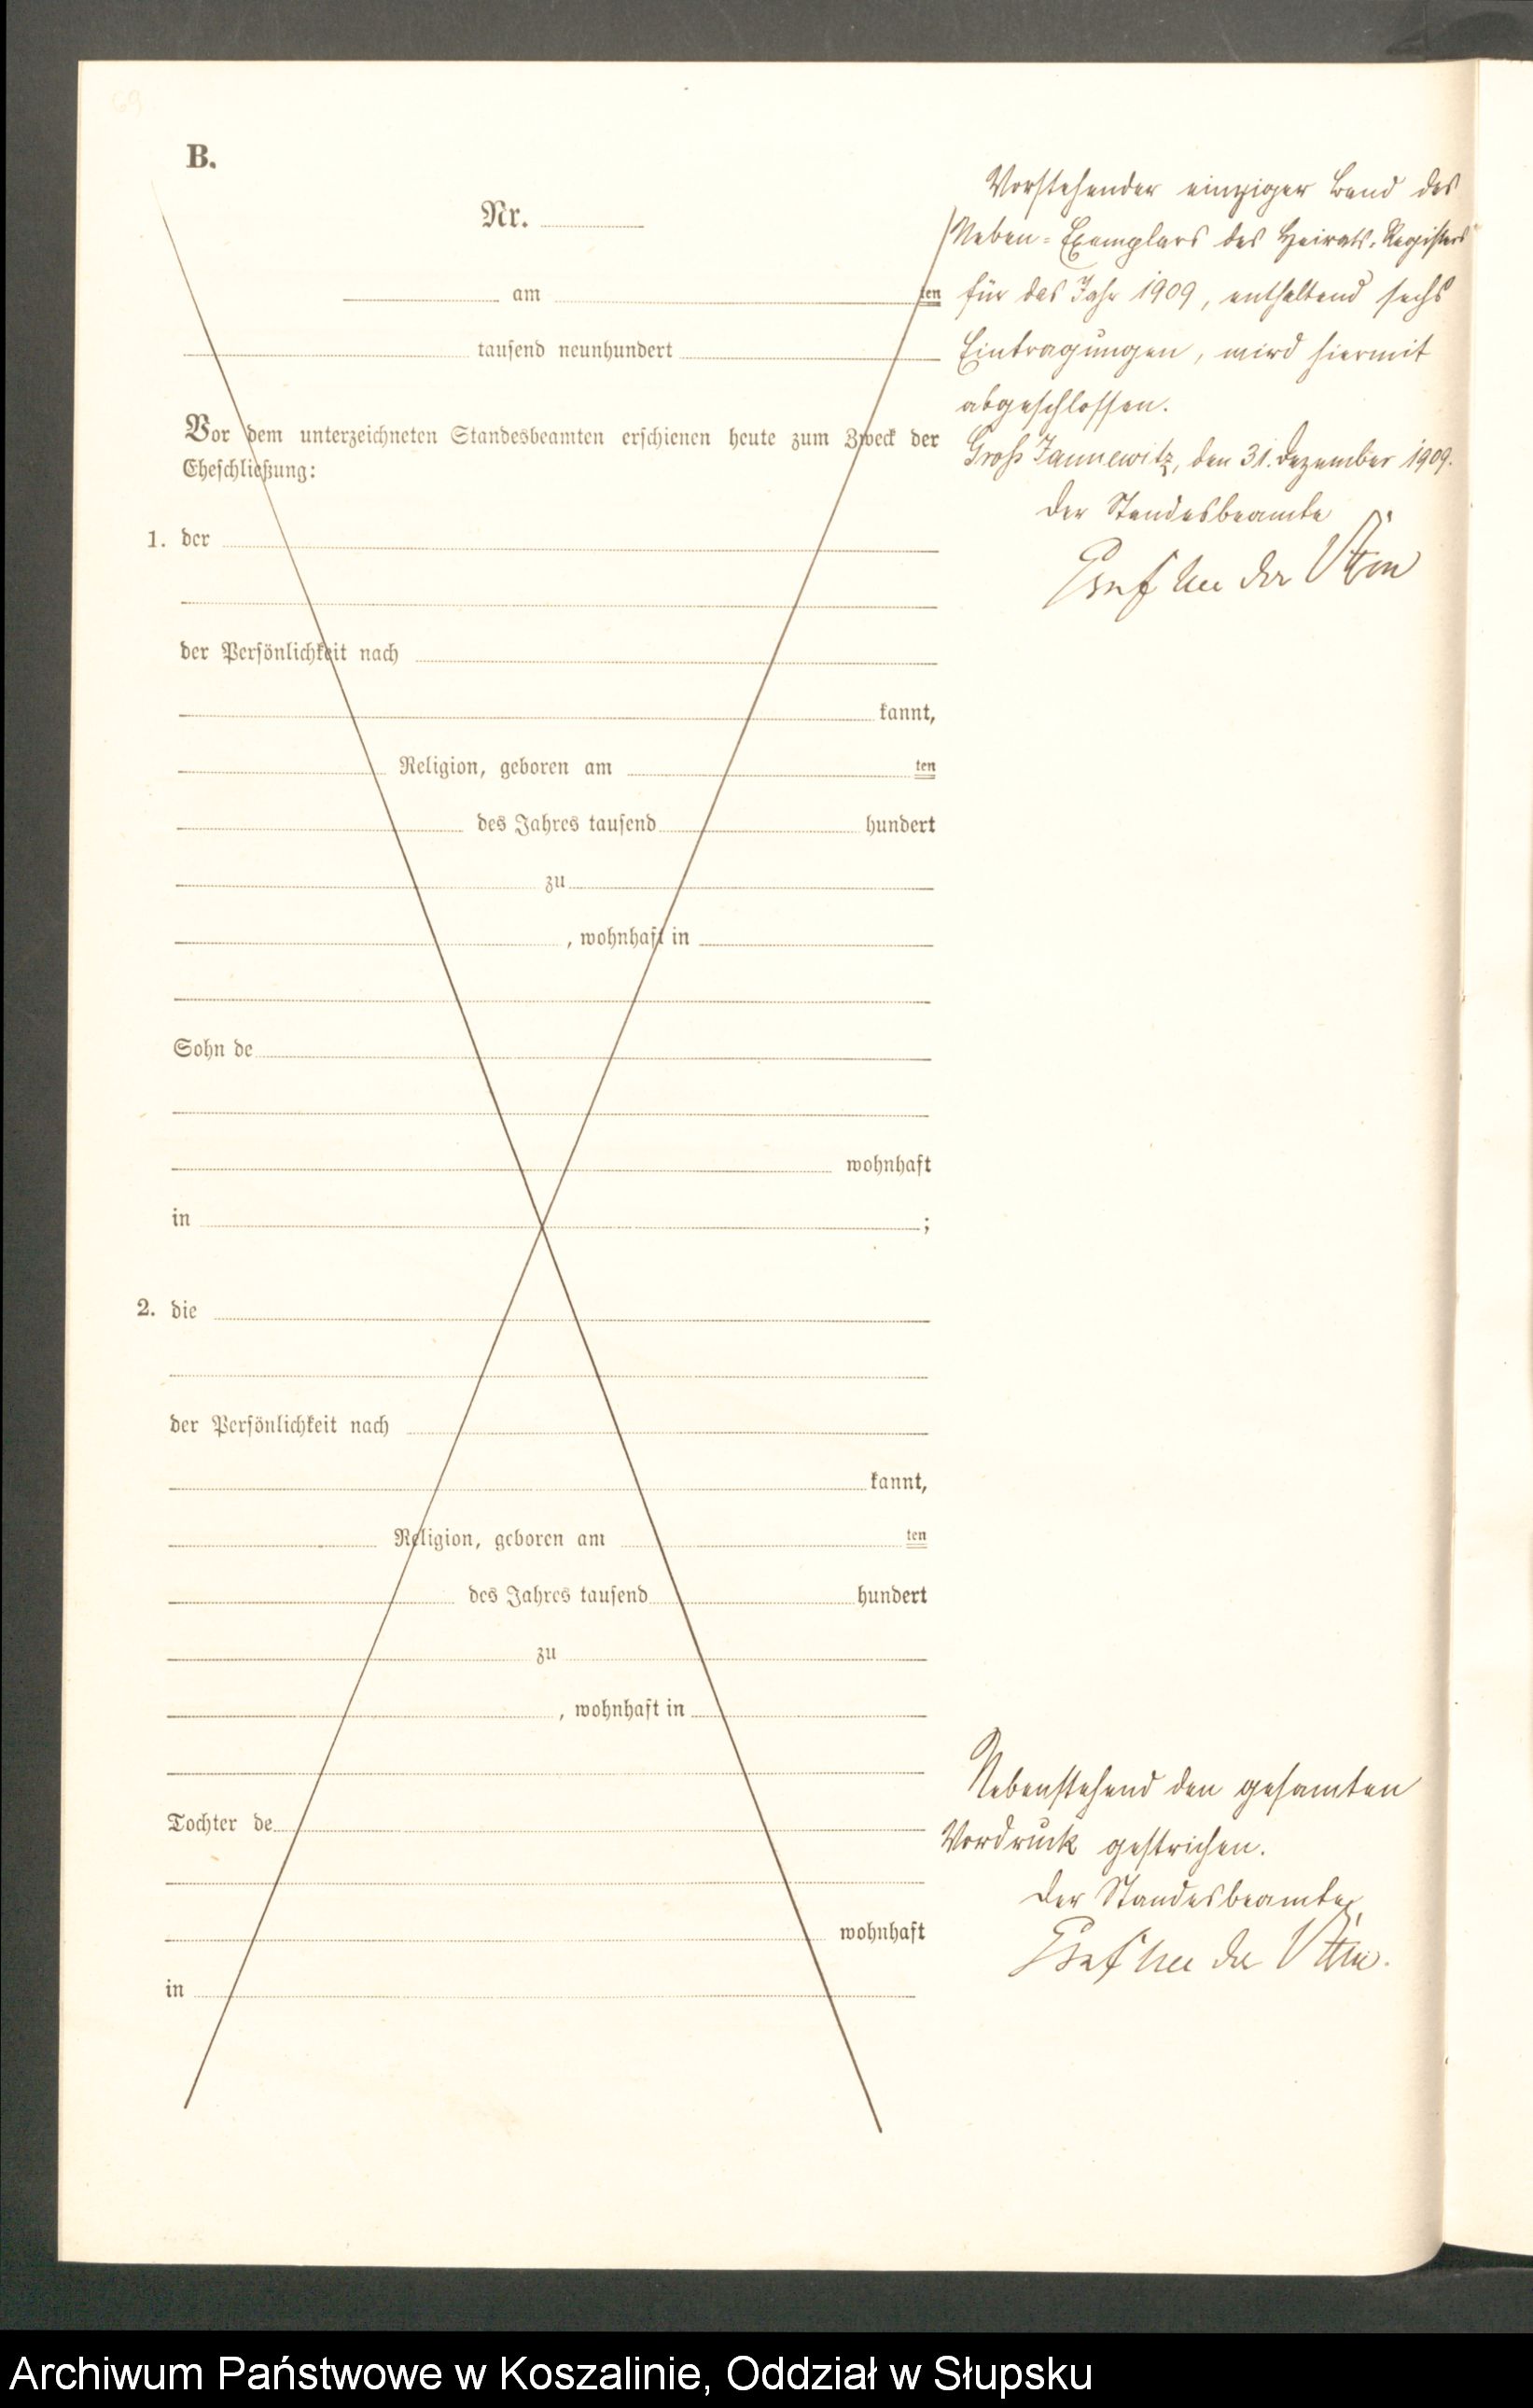 B.
Nr.
am ten
tausend neunhundert
Vor dem unterzeichneten Standesbeamten erschienen heute zum Zweck der
Eheschließung:
1. der
der Persönlichkeit nach
kannt,
Religion, geboren am ten
des Jahres tausend hundert
zu
, wohnhaft in
Sohn de
wohnhaft
in ;
2. die
der Persönlichkeit nach
kannt,
Religion, geboren am ten
des Jahres tausend hundert
zu
, wohnhaft in
Tochter de
wohnhaft
in
Vorstehender einziger Band des
Neben-Exemplars des Heirats-Registers
für das Jahr 1909, enthaltend sechs
Eintragungen, wird hiermit
abgeschlossen.
Groß Jannewitz, den 31. Dezember 1909.
Der Standesbeamte
Nebenstehend den gesamten
Vordruck gestrichen.
Der Standesbeamte,
Archiwum Państwowe w Koszalinie, Oddział w Słupsku